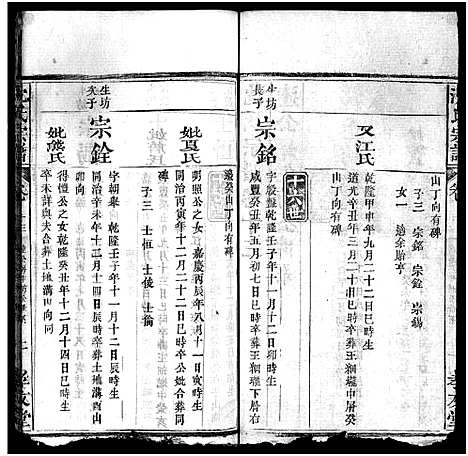 山丁向有碑
子三 宗銘 宗銓 宗錫
女一 適余貽亨
又江氏
乾隆甲申年九月二十日巳時生
道光辛丑年三月二十日卯時卒葬王稠壠中層癸
山丁向有碑
十六世
坊生長子
宗銘
乾隆壬子年十一月十二日辰時生
咸豐癸丑年五月初七日巳時卒葬王稠壠下層右
邊癸山丁向有碑
妣夏氏
明照公之女嘉慶丙辰年八月十一日寅時生
同治丙寅年十二月二十日巳時卒公妣合葬同
子三 士恒 士後 士掄
坊生次子
宗銓
字朝 乾隆壬子年十一月十二日辰時生
同治辛未年十二月十四日辰時卒葬土地溝酉山
妣幾氏
得愷公之女乾隆癸丑年十二月十四日巳時生
卒未詳與夫合葬土地溝山向同
沈氏宗譜
孝友堂